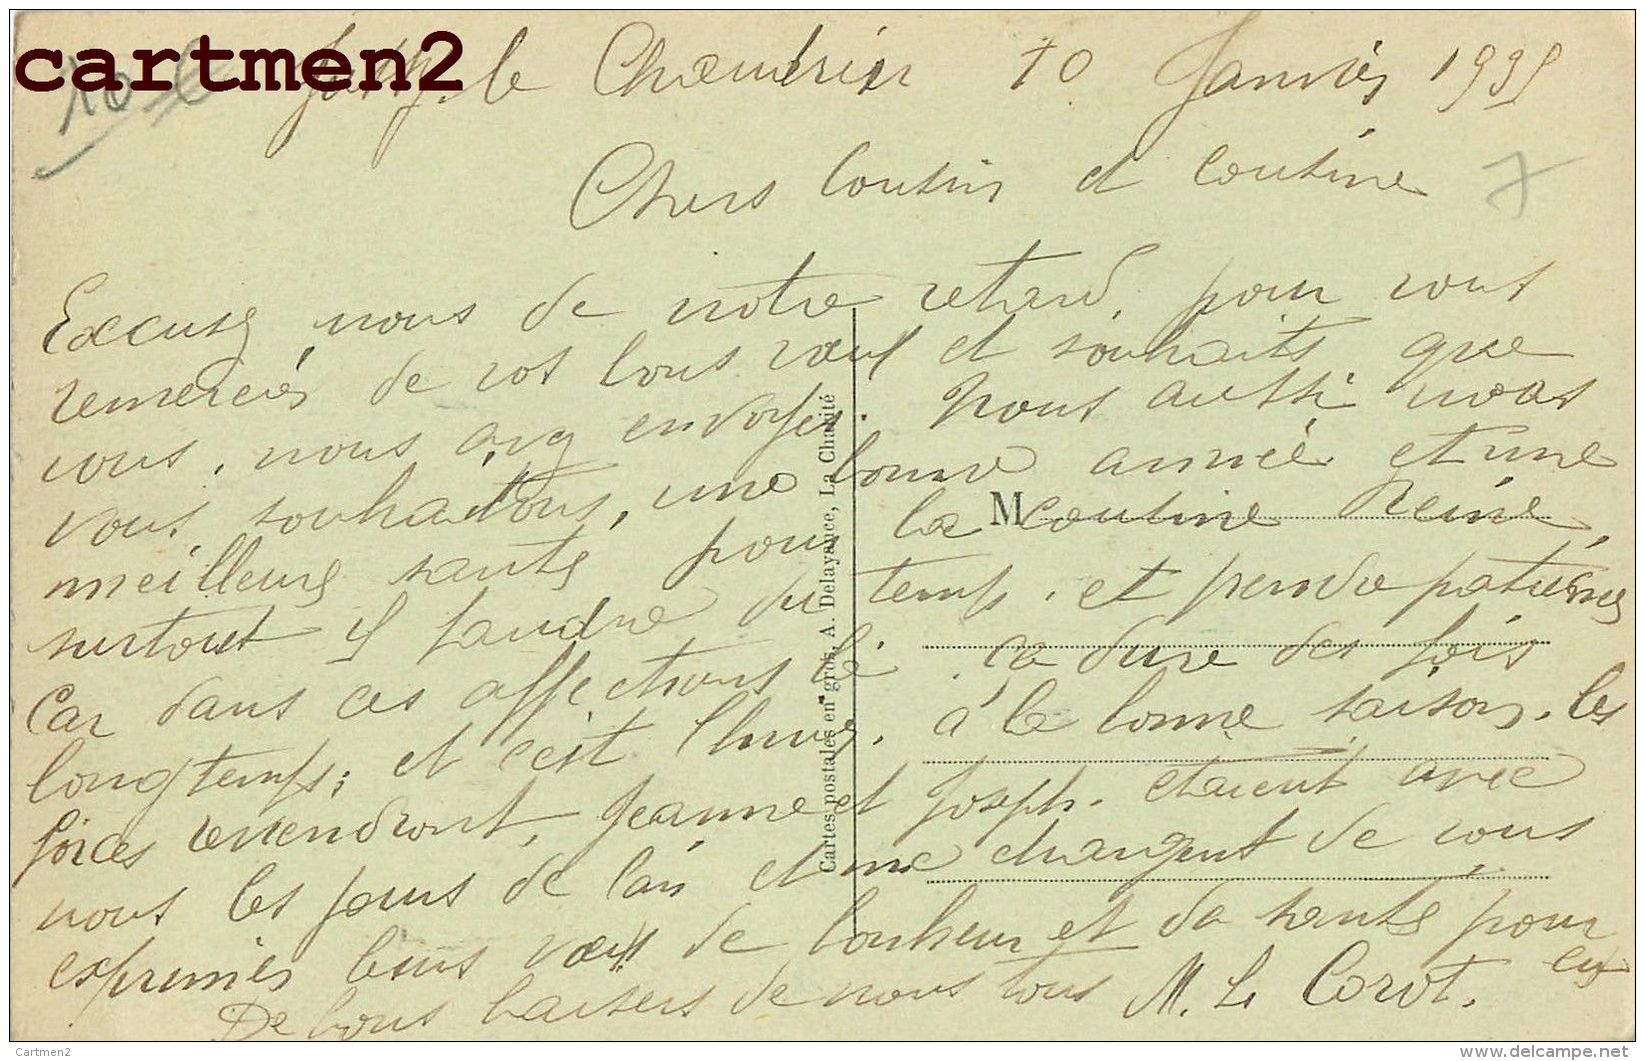 cartmen2
10 €
le Chaudrier 10 Janvier 1939
Chers Cousin et Cousine
7
Excusez nous de notre retard, pour vous
remerciés de vos bons vœux et souhaits que
vous, nous avez envoyés. Nous aussi nous
vous souhaitons, une bonne année et une
meilleure santé pour la Cousine Reine,
surtout il faudra du temps. et prendre patience
Car dans ces affections là ça dure des fois
longtemps; et c'est l'hiver. à la bonne saison. les
forces reviendront, Jeanne et Joseph. etaient avec
nous les jours de l'an et me chargent de vous
exprimés leurs vœux de bonheur et de santé pour
De bons baisers de nous tous M. L. Corot.
M
Cartes postales en gros, A. Delayance, La Charité
Cartmen2
delcampe.net